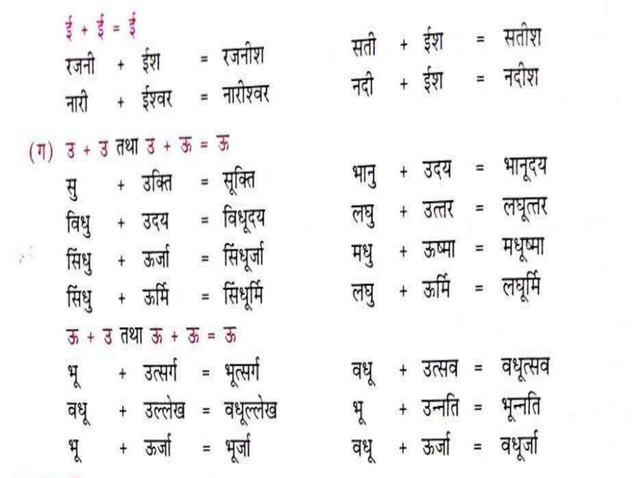 ई + ई = ई
रजनी + ईश = रजनीश सती + ईश = सतीश
नारी + ईश्वर = नारीश्वर नदी + ईश = नदीश
(ग) उ + उ तथा उ + ऊ = ऊ
सु + उक्ति = सूक्ति भानु + उदय = भानूदय
विधु + उदय = विधूदय लघु + उत्तर = लघूत्तर
सिंधु + ऊर्जा = सिंधूर्जा मधु + ऊष्मा = मधूष्मा
सिंधु + ऊर्मि = सिंधूर्मि लघु + ऊर्मि = लघूर्मि
ऊ + उ तथा ऊ + ऊ = ऊ
भू + उत्सर्ग = भूत्सर्ग वधू + उत्सव = वधूत्सव
वधू + उल्लेख = वधूल्लेख भू + उन्नति = भून्नति
भू + ऊर्जा = भूर्जा वधू + ऊर्जा = वधूर्जा